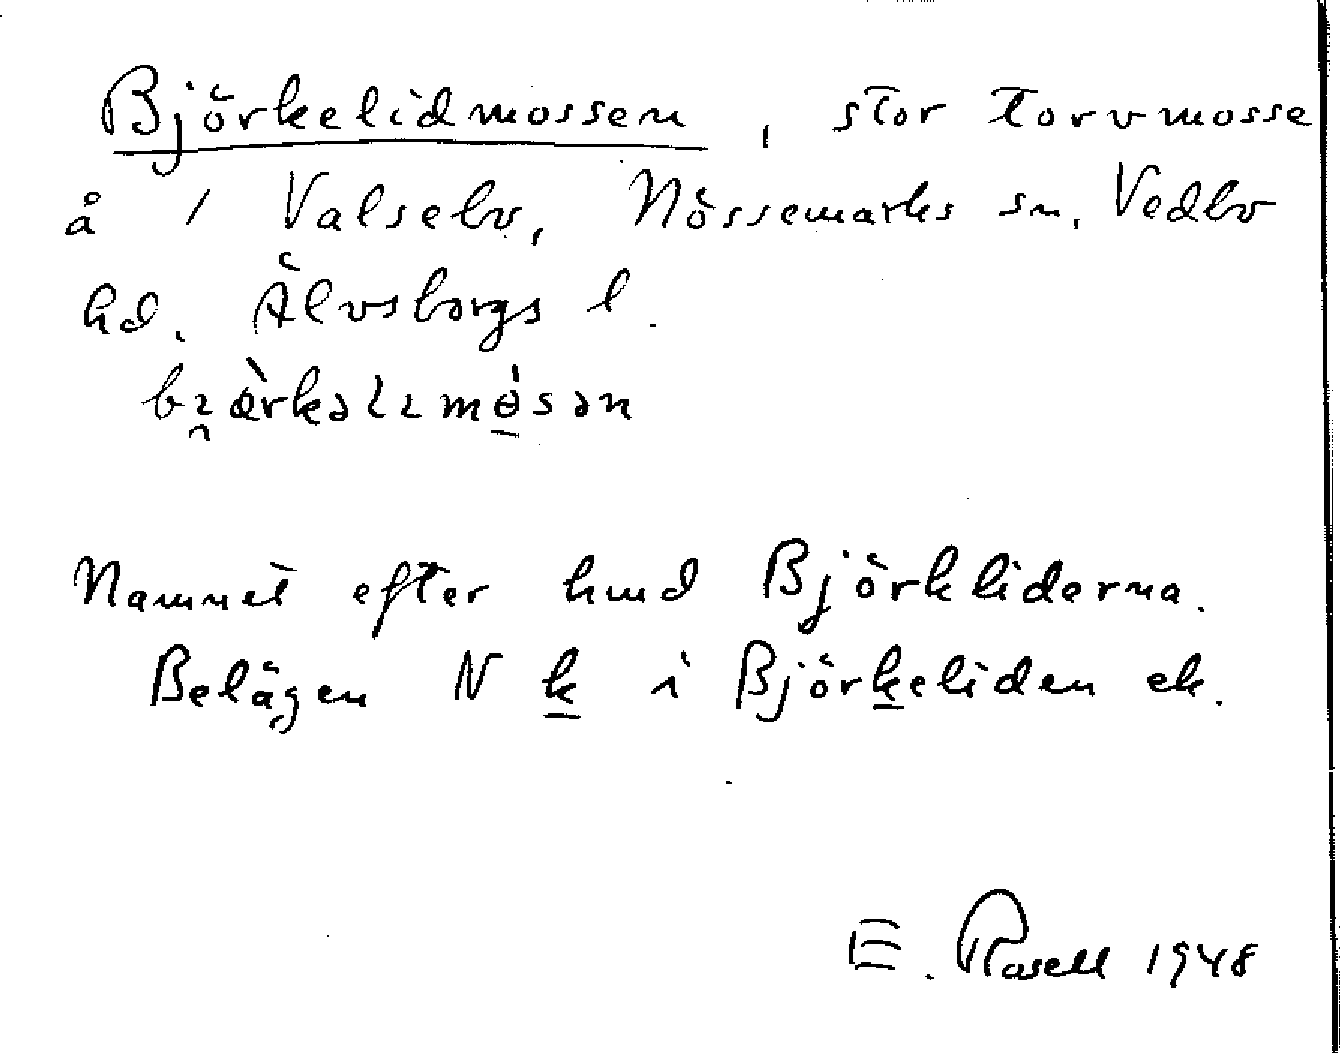 Björkelidmossen, stor torvmosse
å 1 Valsebo, Nössemarks sn, Vedbo
hd. Älvsborgs l.
Namnet efter hmd Björkliderna.
Belägen N k i Björkeliden ek.
E. Rosell 1948